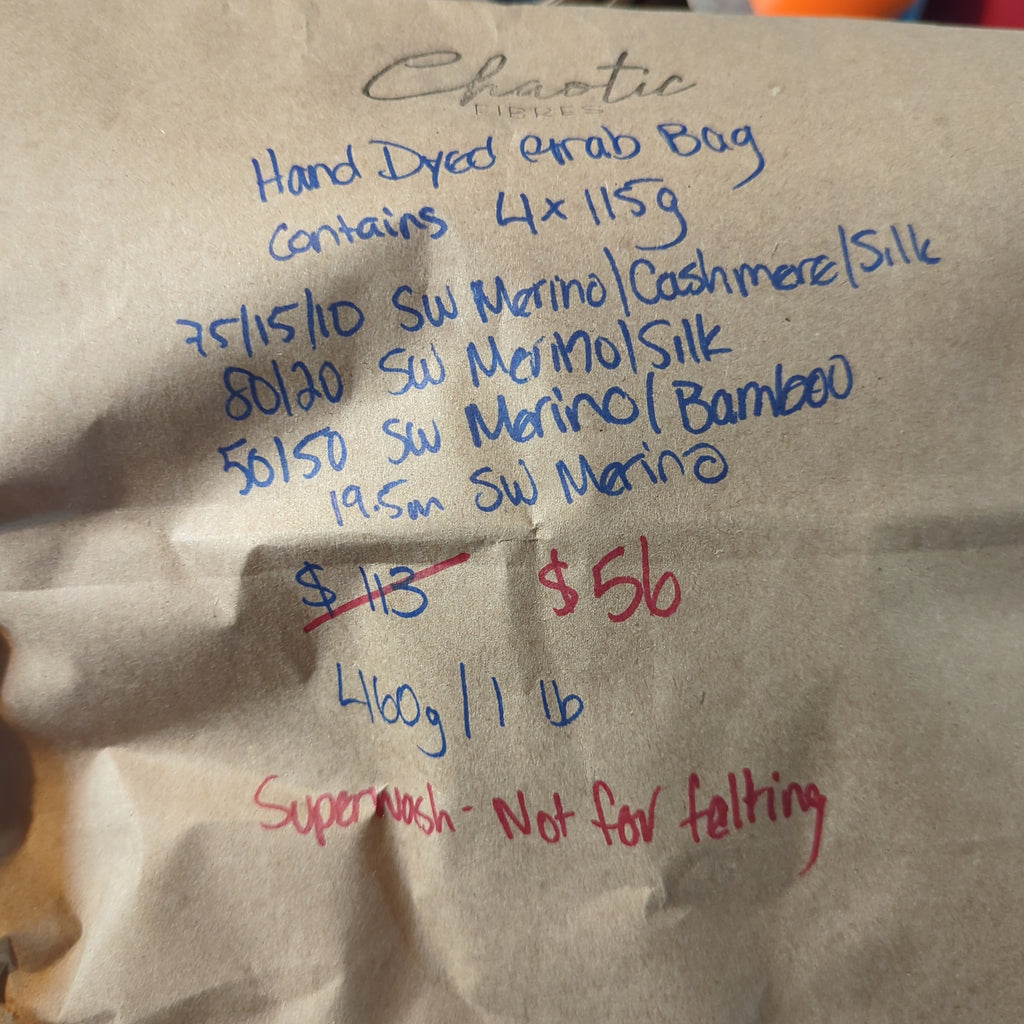 Chaotic
FIBRES
Hand Dyed Grab Bag
Contains 4x 115g
75/15/10 SW Merino/Cashmere/Silk
80/20 SW Merino/Silk
50/50 SW Merino/Bamboo
19.5m SW Merino
$113 $56
460g/1 lb
Superwash - Not for felting